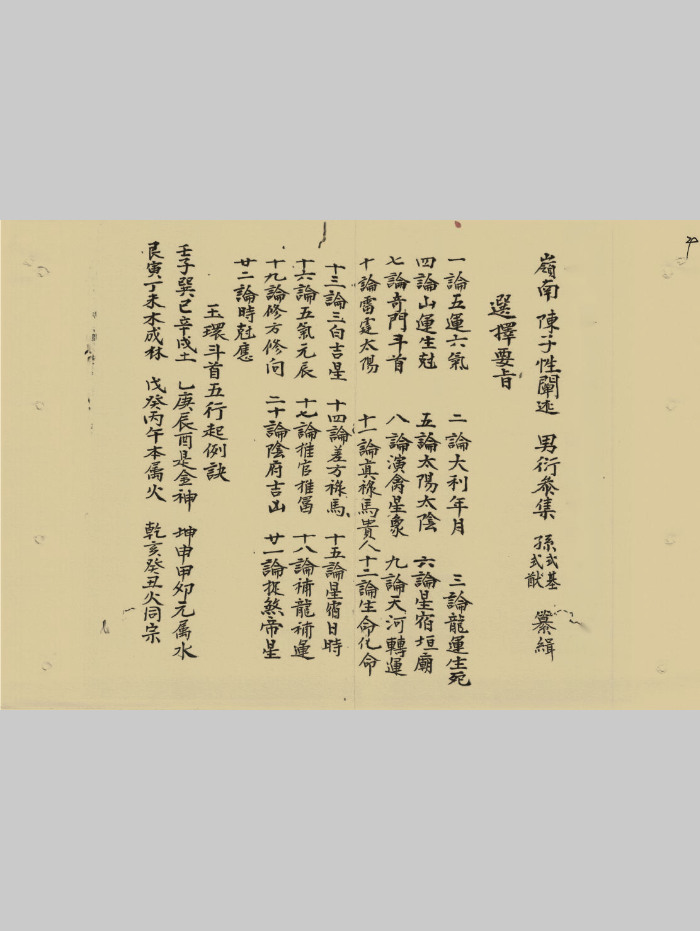 嶺南 陳子性闡述 男衍參集 孫式基 式猷 纂緝
選擇要旨
一論五運六氣 二論大利年月 三論龍運生死
四論山運生尅 五論太陽太陰 六論星宿垣廟
七論奇門斗首 八論演禽星象 九論天河轉運
十論雷霆太陽 十一論真祿馬貴人 十二論生命化命
十三論三白吉星 十四論差方祿馬 十五論星宿日時
十六論五氣元辰 十七論推官推富 十八論補龍補運
十九論修方修向 二十論陰府吉山 廿一論提煞帝星
廿二論時尅應
玉環斗首五行起例訣
壬子巽巳辛戌土 乙庚辰酉是金神 坤申甲卯元属水
艮寅丁未木成林 戊癸丙午本属火 乾亥癸丑火同宗